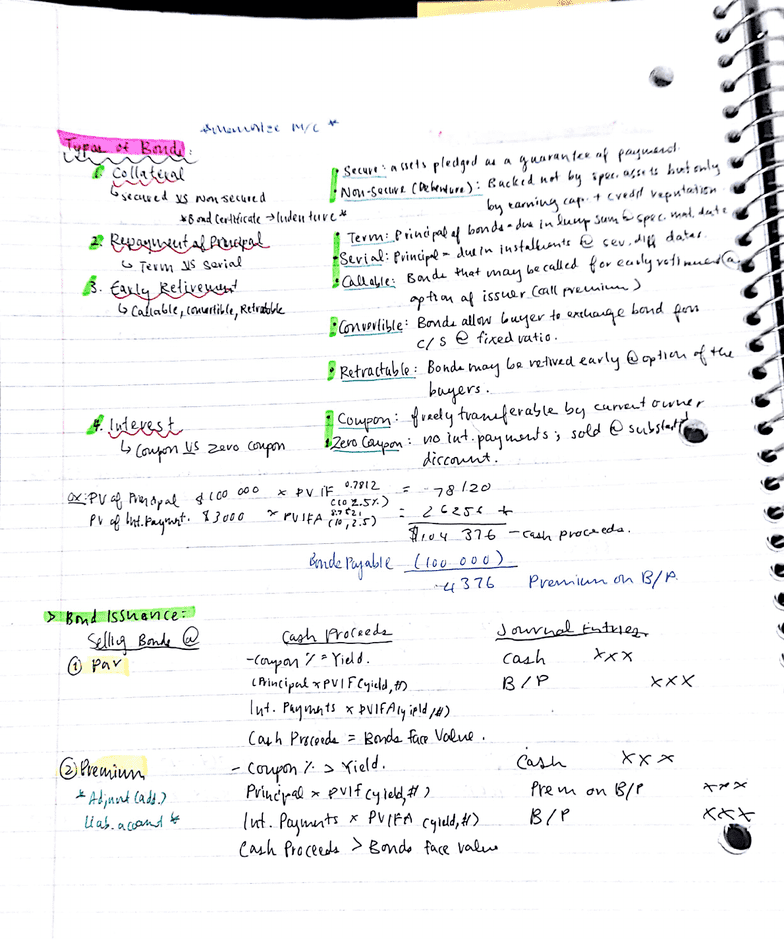 *Memorize M/C *
Types of Bonds:
1. Collateral
↳ secured vs non-secured
*Bond Certificate → Indenture*
• Secure: assets pledged as a guarantee of payment.
• Non-Secure (Debenture): Backed not by spec. assets but only
by earning cap. + credit reputation
2. Repayment of Principal
↳ Term vs Serial
• Term: Principal of bonds = due in lump sum @ spec. mat. date
• Serial: Principal = due in installments @ sev. diff dates.
3. Early Retirement
↳ Callable, Convertible, Retractable
• Callable: Bonds that may be called for early retirement @
option of issuer (call premium)
• Convertible: Bonds allow buyer to exchange bond for
c/s @ fixed ratio.
• Retractable: Bonds may be retired early @ option of the
buyers.
4. Interest
↳ Coupon vs Zero coupon
• Coupon: freely transferable by current owner
• Zero Coupon: no int. payments; sold @ substant'l
discount.
ex: PV of Principal $100 000 x PVIF 0.7812 (10, 2.5%) = 78120
PV of Int. Payment. $3000 x PVIFA (10, 2.5) = 26256 +
$104 376 - cash proceeds.
Bonds Payable (100 000)
4376 Premium on B/P.
> Bond Issuance:
Selling Bonds @ Cash Proceeds Journal Entries
① Par - Coupon % = Yield. Cash xxx
(Principal x PVIF (yield, #) B/P xxx
Int. Payments x PVIFA (yield, #)
Cash Proceeds = Bonds face Value.
② Premium - Coupon % > Yield. Cash xxx
*Adjunct (add.) Principal x PVIF (yield, #) Prem on B/P xxx
Liab. account * Int. Payments x PVIFA (yield, #) B/P xxx
Cash Proceeds > Bonds face value